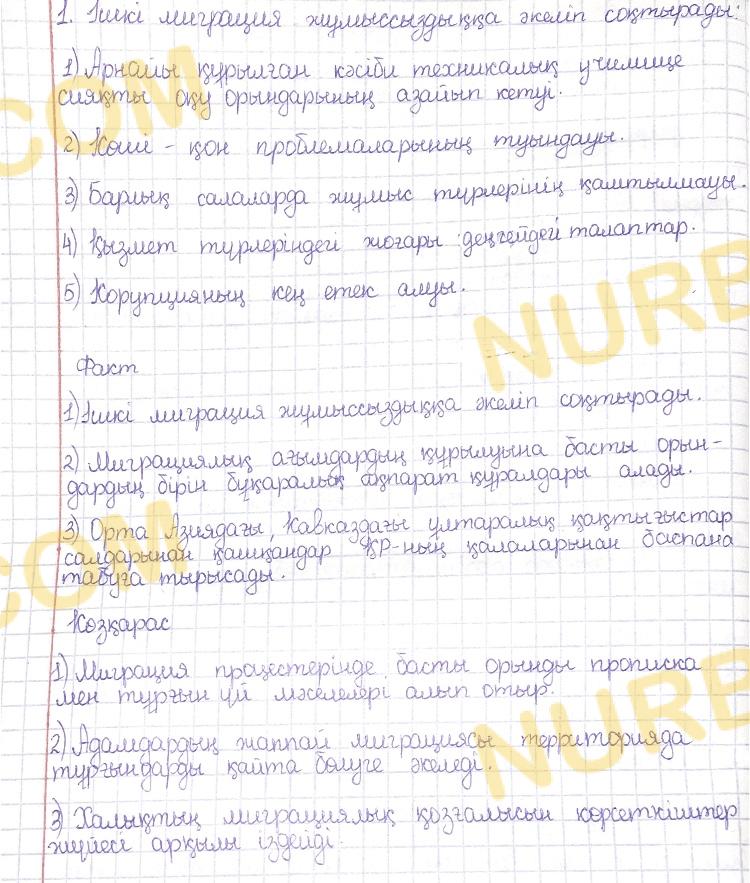 1. Ішкі миграция жұмыссыздыққа әкеліп соқтырады:
1) Арнайы құрылған кәсіби техникалық училище
сияқты оқу орындарының азайып кетуі.
2) Көші - қон проблемаларының туындауы.
3) Барлық салаларда жұмыс түрлерінің қамтылмауы.
4) Қызмет түрлеріндегі жоғары деңгейдегі талаптар.
5) Корупцияның кең етек алуы.
Факт
1) Ішкі миграция жұмыссыздыққа әкеліп соқтырады.
2) Миграциялық ағымдардың құрылуына басты орын-
дардың бірін бұқаралық ақпарат құралдары алады.
3) Орта Азиядағы, Кавказдағы ұлтаралық қақтығыстар
салдарынан қашқандар ҚР-ның қалаларынан баспана
табуға тырысады.
Көзқарас
1) Миграция процестерінде басты орынды прописка
мен тұрғын үй мәселелері алып отыр.
2) Адамдардың жаппай миграциясы территорияда
тұрғындарды қайта бөлуге әкеледі.
3) Халықтың миграциялық қозғалысын көрсеткіштер
жүйесі арқылы іздейді.
COM
NURB
COM
NURB